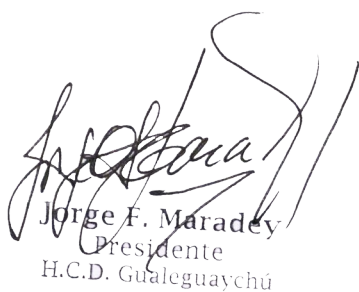 Jorge F. Maradey
Presidente
H.C.D. Gualeguaychú